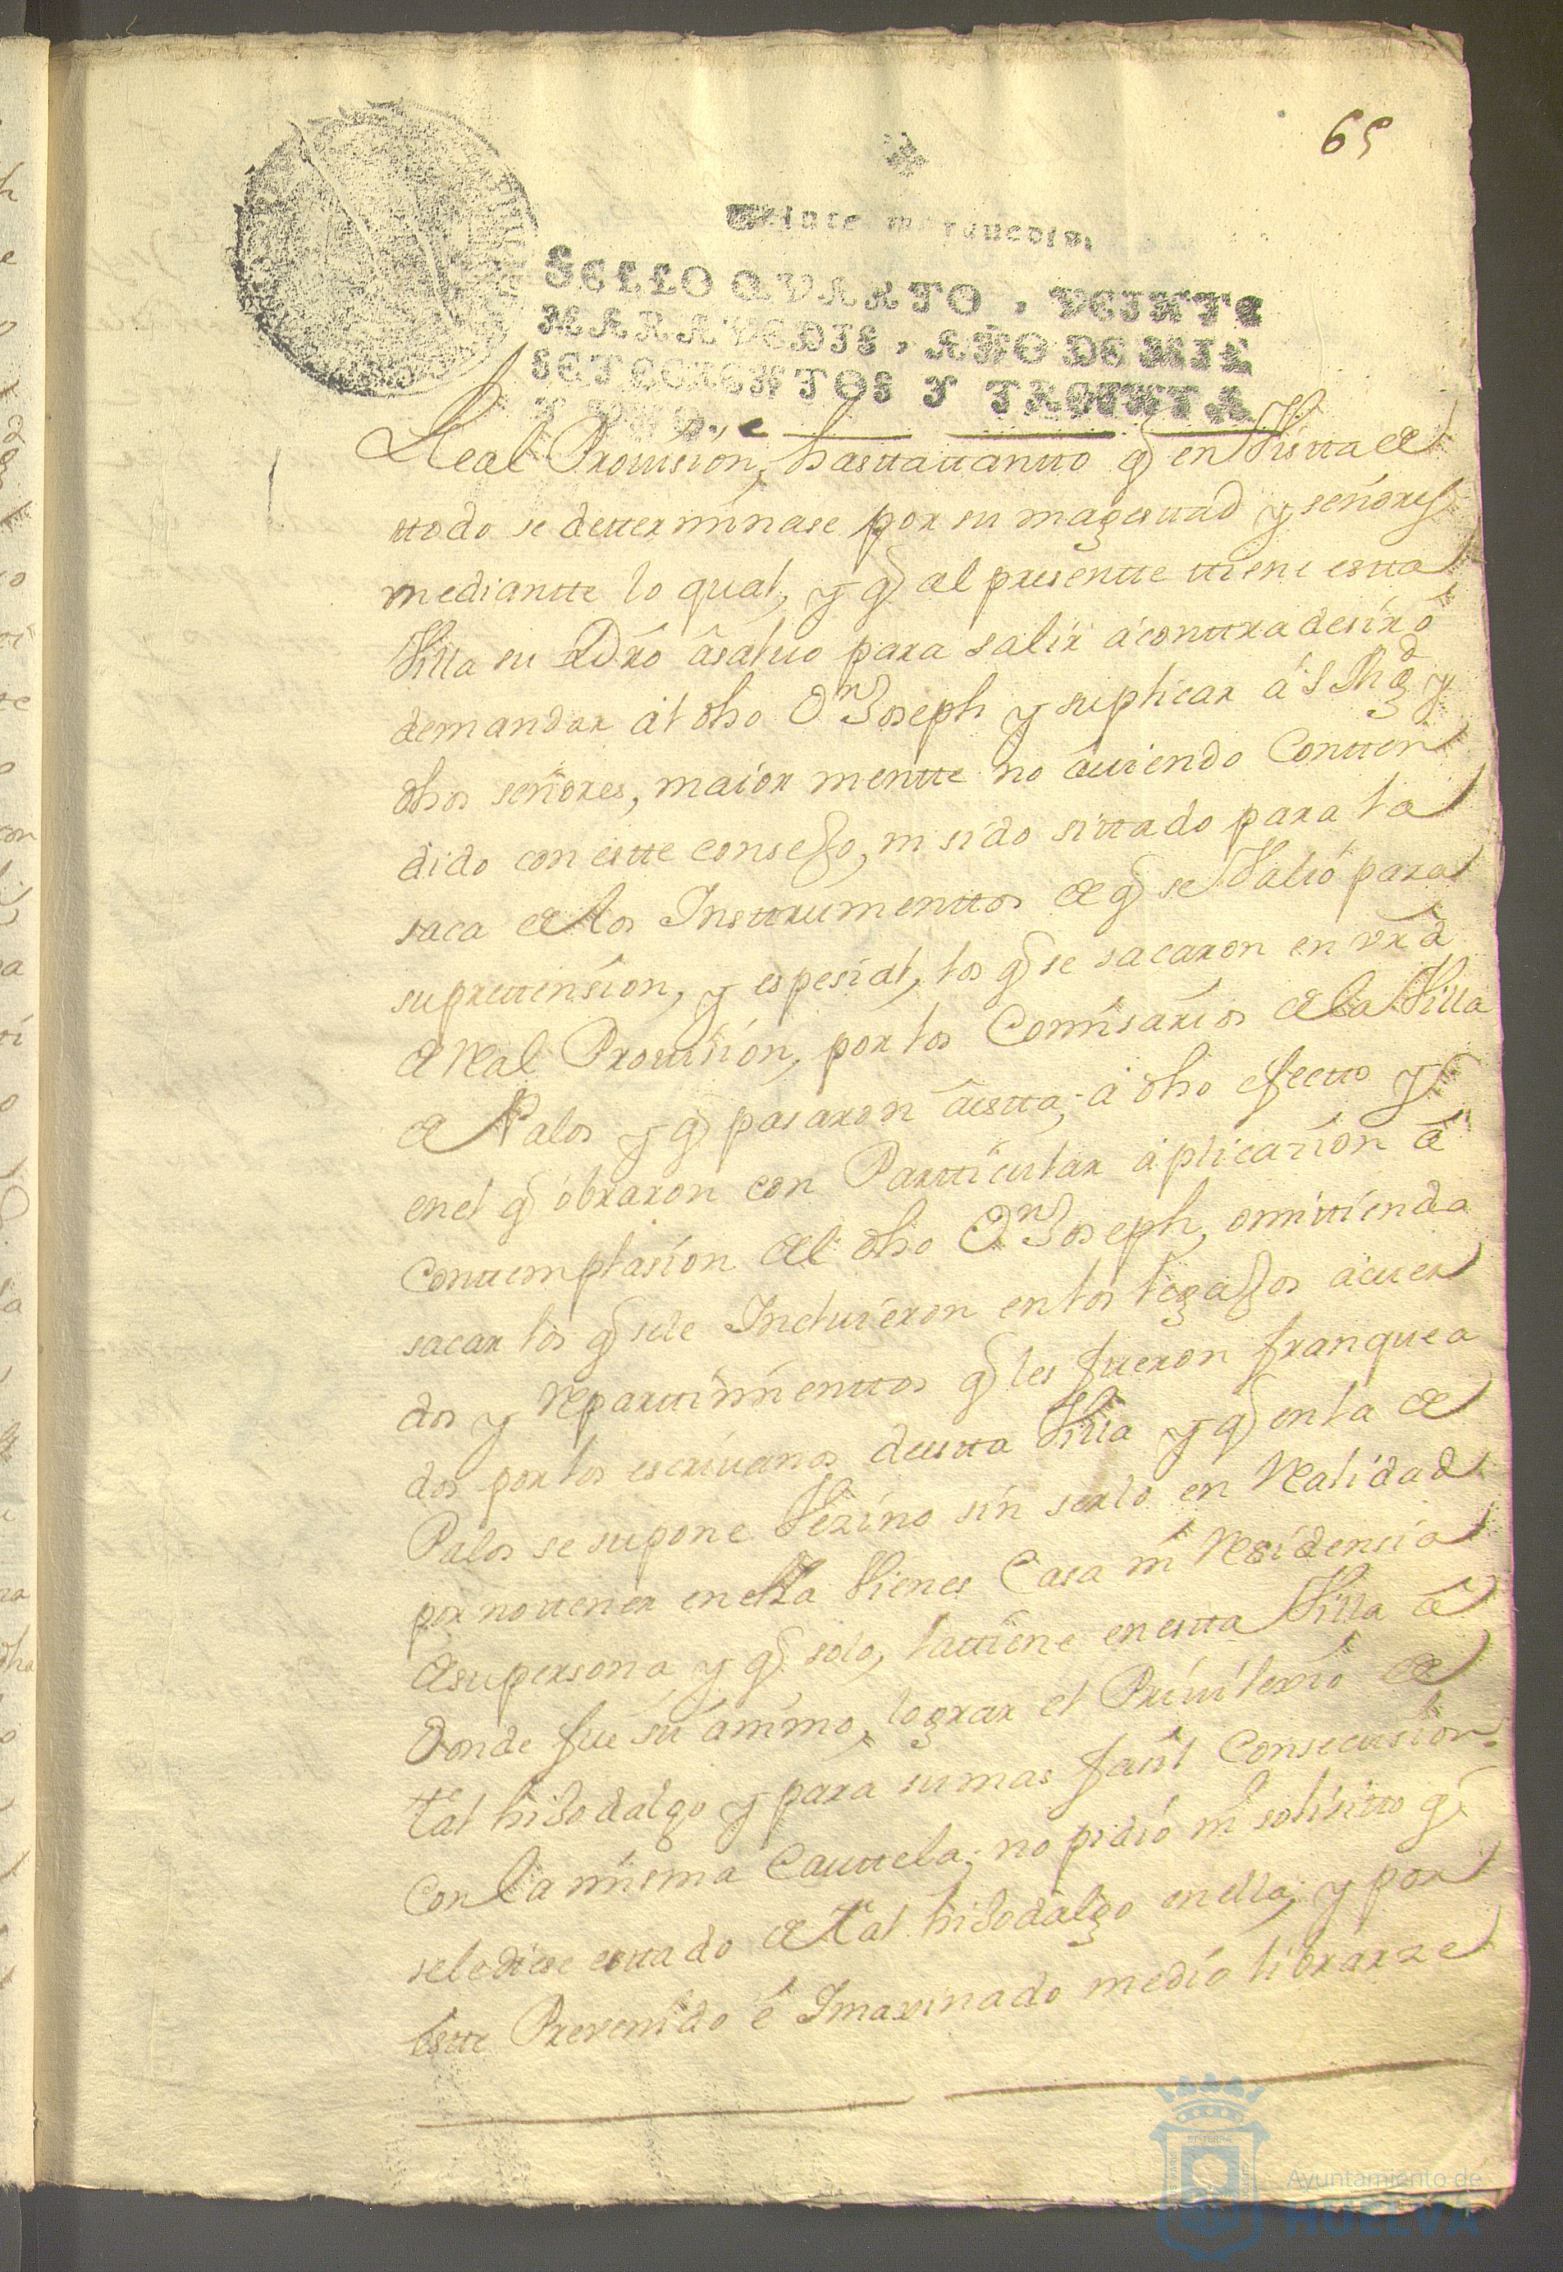 65
Veinte marauedis,
SELLO QVARTO, VEINTE
MARAVEDIS, AÑO DE MIL
SETECIENTOS Y TREINTA
Y VNO.
Real Prouision, hastta ttantto q̃ en Vistta de
ttodo se detterminase por su magesttad y señores
mediantte lo qual, y q̃ al presentte ttiene estta
Villa su dr̃o âsaluo para salir â conttradesir o
demandar âl dho Dn Joseph y suplicar â S Mgd y
dhos señores, maiormentte no âuiendo Contten
dido con estte consejo, ni sido sittado para la
saca de los Insttrumenttos de q̃ se Valió para
su prettension, y espesial, los q̃ se sacaron en vrd
de Real Prouision, por los Comisarios de la Villa
de Palos y q̃ pasaron âestta, â dho efectto y
en el q̃ obraron con Partticular âplicazion â
Conttemplasion del dho Dn Joseph, omittiendo
sacar los q̃ se le Incluieron en los legajos âcuer
dos y Reparttimienttos q̃ les fueron franquea
dos por los escriuanos de estta Villa y q̃ en la de
Palos se supone Vezino sin serlo en Realidad
por no ttener en ella Vienes Casa ni Residensia
de su persona, y q̃ solo, la ttiene en estta Villa â
Donde fue su animo, lograr el Priuilexio de
tal hijodalgo y para su mas fasil Consecusion
Con la misma Cauttela, no pidió ni solisitto q̃
se le diese esttado de tal hijodalgo en ella, y por
estte Prevenido é Imaxinado medio librarze
Ayuntamiento de
HUELVA